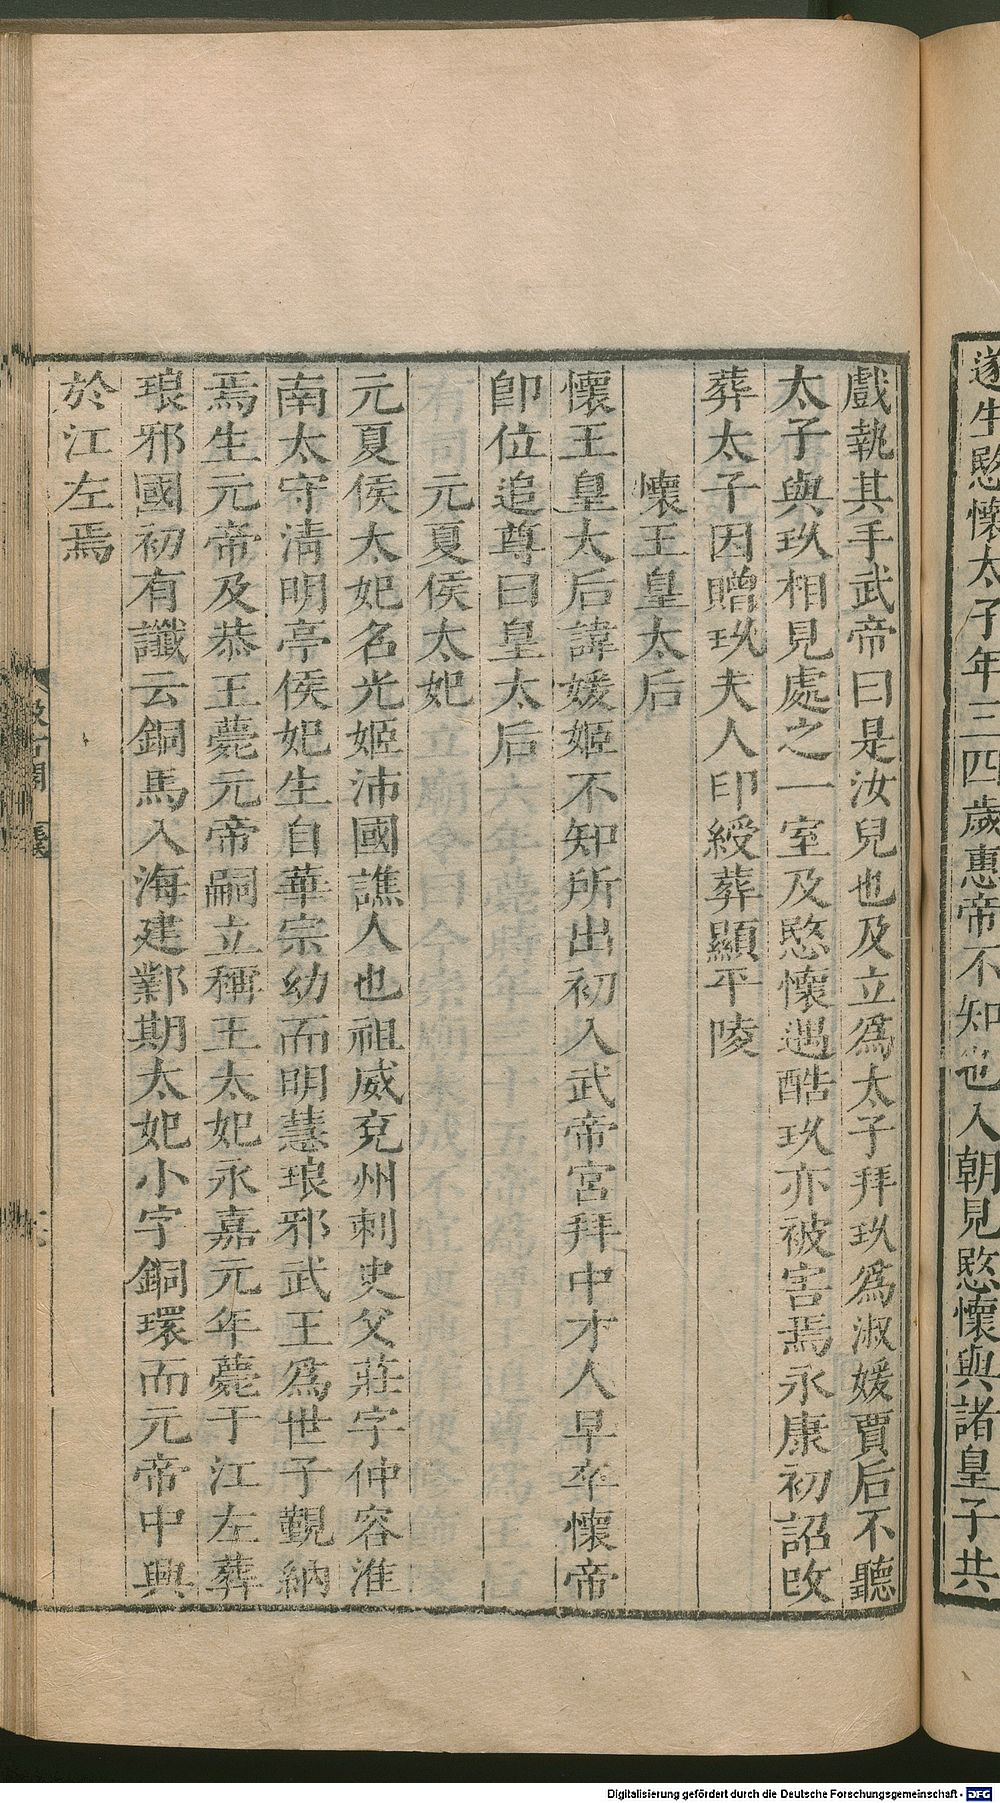 遂生愍懷太子年三四歲惠帝不知也入朝見愍懷與諸皇子共
戲執其手武帝曰是汝兒也及立爲太子拜玖爲淑媛賈后不聽
太子與玖相見處之一室及愍懷遇酷玖亦被害焉永康初詔改
葬太子因贈玖夫人印綬葬顯平陵
懷王皇太后
懷王皇太后諱媛姬不知所出初入武帝宮拜中才人早卒懷帝
卽位追尊曰皇太后
元夏侯太妃
元夏侯太妃名光姬沛國譙人也祖威兗州刺史父莊字仲容淮
南太守清明亭侯妃生自華宗幼而明慧琅邪武王爲世子覲納
焉生元帝及恭王薨元帝嗣立稱王太妃永嘉元年薨于江左葬
琅邪國初有讖云銅馬入海建鄴期太妃小字銅環而元帝中興
於江左焉
Digitalisierung gefördert durch die Deutsche Forschungsgemeinschaft - DFG